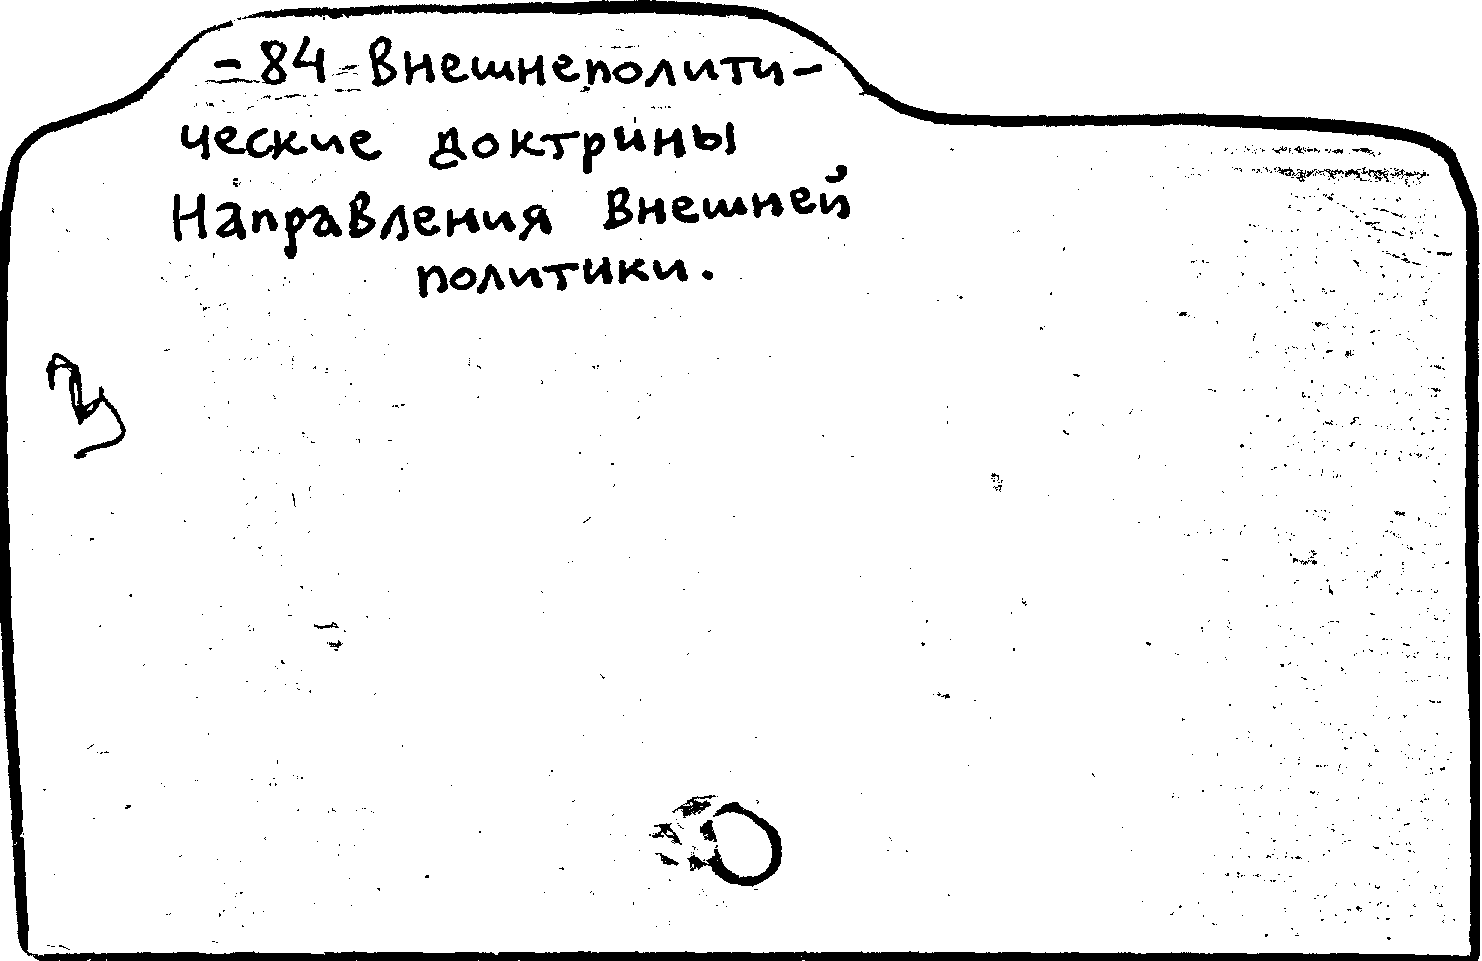 - 84 - Внешнеполити-
ческие доктрины
Направления внешней
политики.